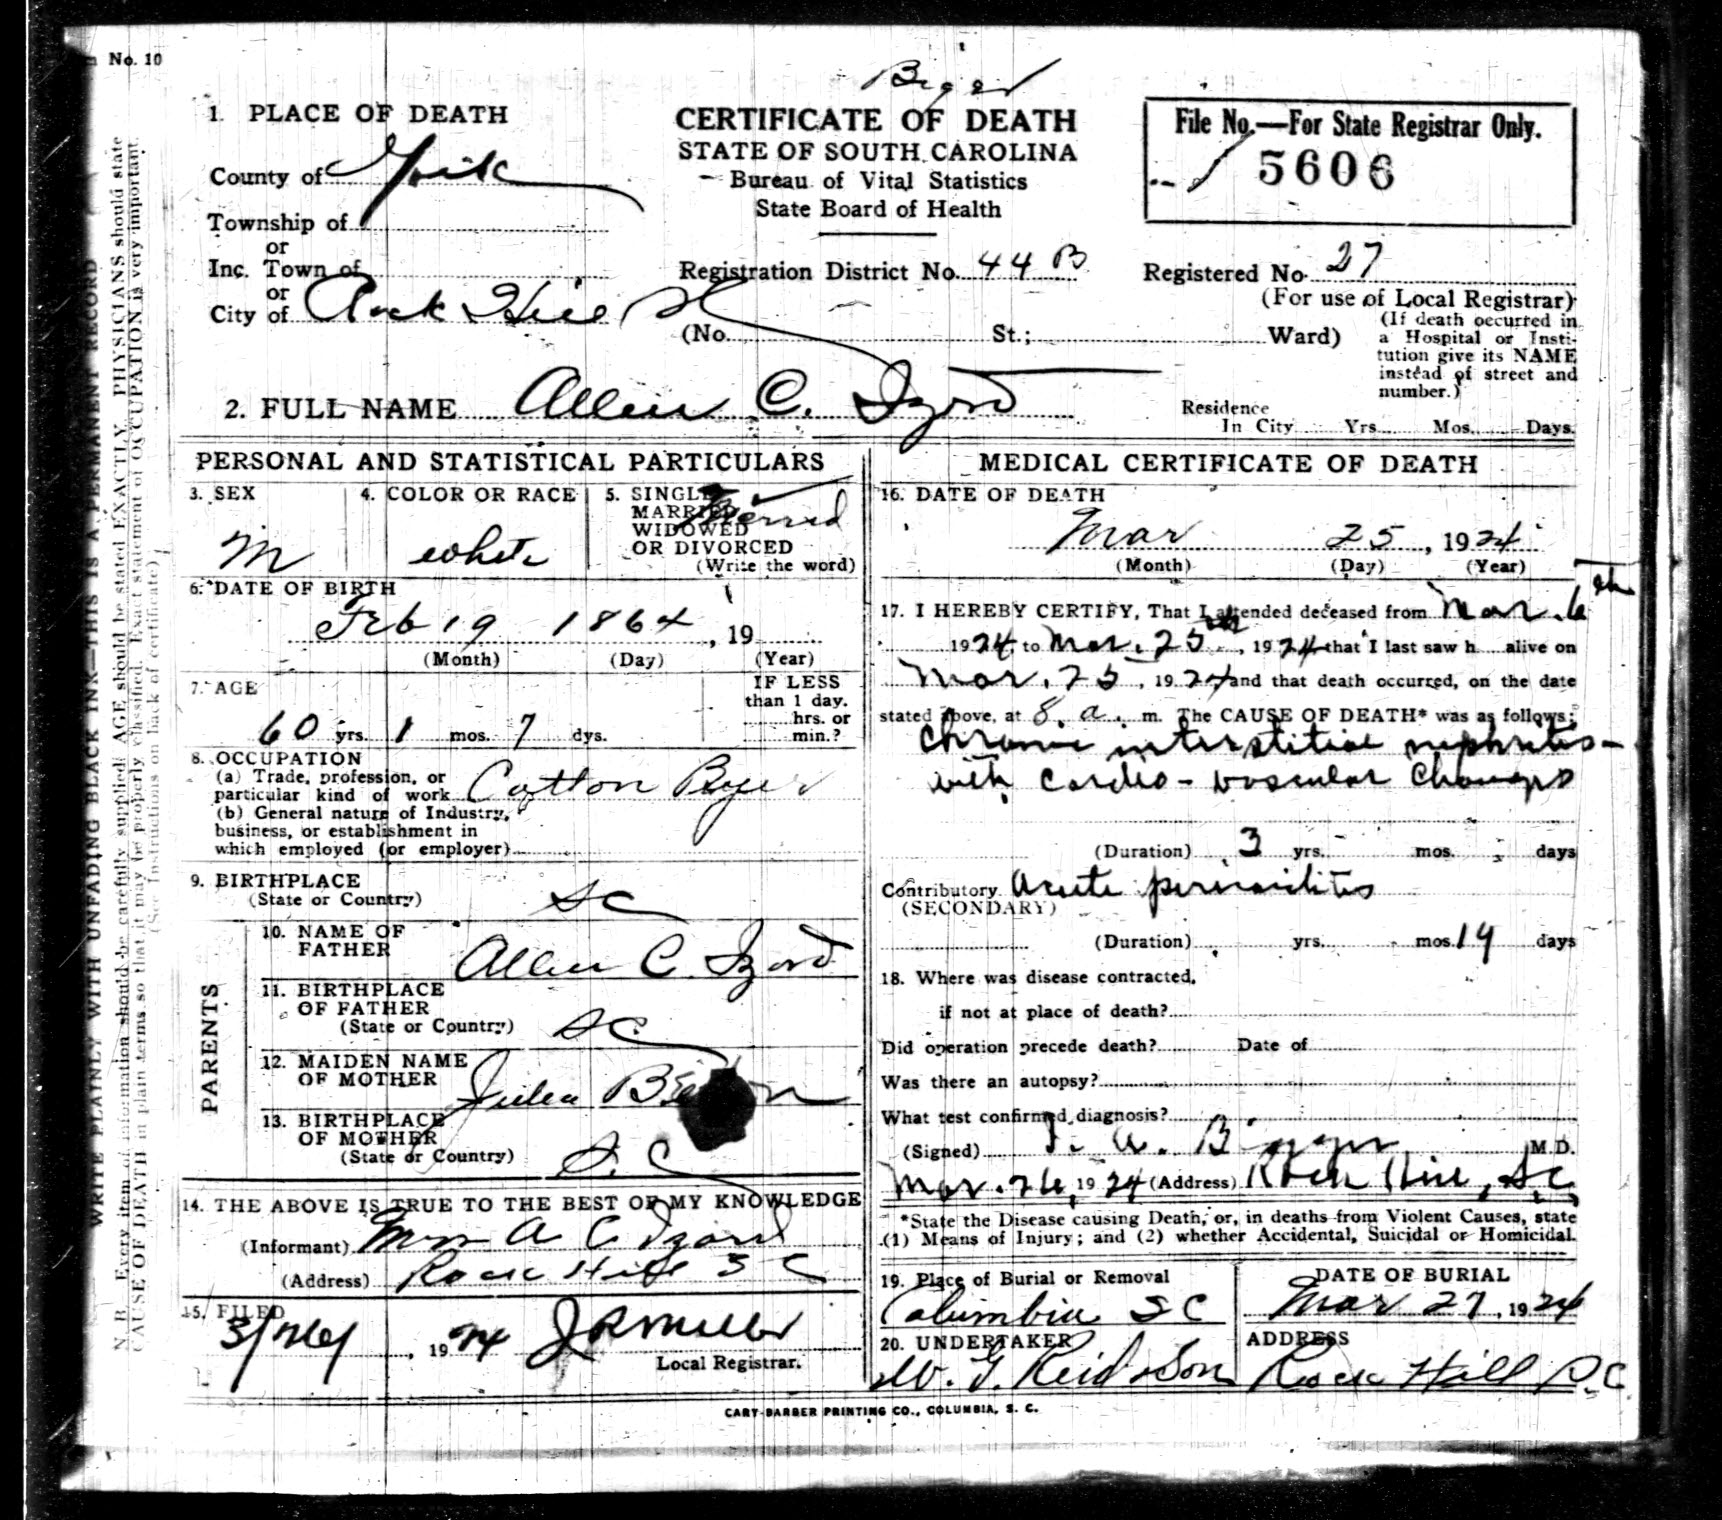 No. 10
1. PLACE OF DEATH
County of York
Township of
or
Inc. Town of
or
City of Rock Hill SC
CERTIFICATE OF DEATH
STATE OF SOUTH CAROLINA
Bureau of Vital Statistics
State Board of Health
File No.—For State Registrar Only.
5606
Registration District No. 44 B
Registered No. 27
(For use of Local Registrar)
(No. St.; Ward)
(If death occurred in
a Hospital or Insti-
tution give its NAME
instead of street and
number.)
2. FULL NAME Allen C. Izard
Residence
In City Yrs. Mos. Days.
PERSONAL AND STATISTICAL PARTICULARS
3. SEX
M
4. COLOR OR RACE
white
5. SINGLE
MARRIED
WIDOWED
OR DIVORCED
(Write the word)
Married
6. DATE OF BIRTH
Feb 19 1864, 19
(Month) (Day) (Year)
7. AGE
60 yrs. 1 mos. 7 dys.
IF LESS
than 1 day.
hrs. or
min.?
8. OCCUPATION
(a) Trade, profession, or
particular kind of work Cotton Byer
(b) General nature of Industry,
business, or establishment in
which employed (or employer)
9. BIRTHPLACE
(State or Country) SC
PARENTS
10. NAME OF
FATHER Allen C. Izard
11. BIRTHPLACE
OF FATHER
(State or Country) SC
12. MAIDEN NAME
OF MOTHER Julia
13. BIRTHPLACE
OF MOTHER
(State or Country) S. C
14. THE ABOVE IS TRUE TO THE BEST OF MY KNOWLEDGE
(Informant) Mrs A C Izard
(Address) Rock Hill S C
15. FILED
3/26, 1924 J R Miller
Local Registrar.
MEDICAL CERTIFICATE OF DEATH
16. DATE OF DEATH
Mar 25, 1924
(Month) (Day) (Year)
17. I HEREBY CERTIFY, That I attended deceased from Mar. 6th
1924, to Mar. 25th, 1924 that I last saw h alive on
Mar. 25, 1924 and that death occurred, on the date
stated above, at 8. a. m. The CAUSE OF DEATH* was as follows:
Chronic interstitial nephritis—
with cardio-vascular changes
(Duration) 3 yrs. mos. days
Contributory Acute pericarditis
(SECONDARY)
(Duration) yrs. mos. 14 days
18. Where was disease contracted,
if not at place of death?
Did operation precede death? Date of
Was there an autopsy?
What test confirmed diagnosis?
(Signed) M.D.
Mar. 26, 1924 (Address) Rock Hill, S.C.
*State the Disease causing Death, or, in deaths from Violent Causes, state
(1) Means of Injury; and (2) whether Accidental, Suicidal or Homicidal.
19. Place of Burial or Removal
Columbia S C
DATE OF BURIAL
Mar 27, 1924
20. UNDERTAKER
W. G. Reid & Son
ADDRESS
Rock Hill S.C
CARY-BARBER PRINTING CO., COLUMBIA, S. C.
WRITE PLAINLY WITH UNFADING BLACK INK—THIS IS A PERMANENT RECORD
N. B. Every item of information should be carefully supplied. AGE should be stated EXACTLY. PHYSICIANS should state
CAUSE OF DEATH in plain terms so that it may be properly classified. Exact statement of OCCUPATION is very important.
(See Instructions on back of certificate)